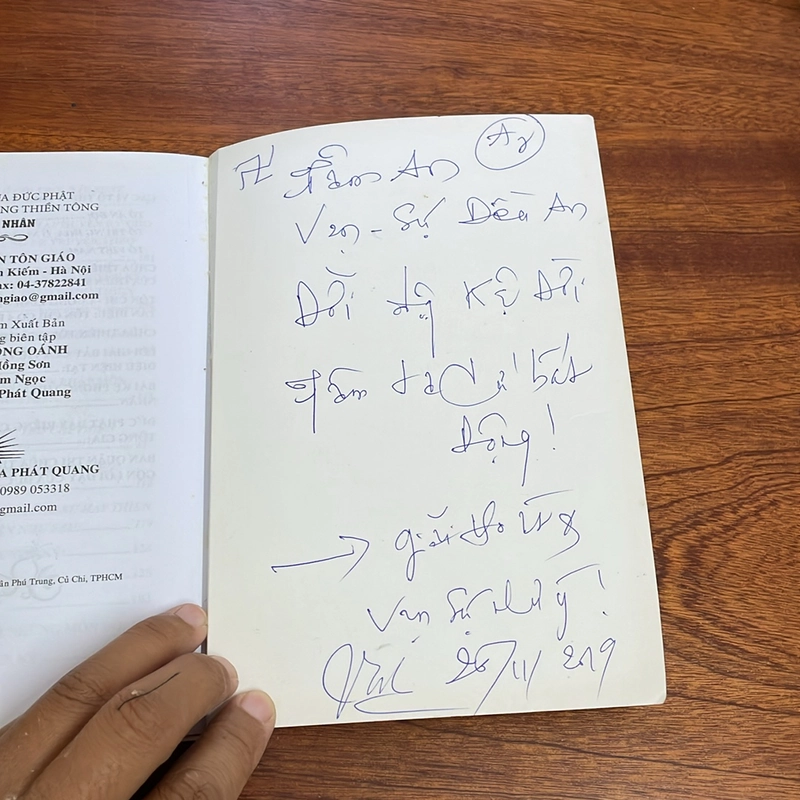 A ĐỨC PHẬT
NG THIỀN TÔNG
NHÂN
N TÔN GIÁO
n Kiếm - Hà Nội
ax: 04-37822841
ngiao@gmail.com
m Xuất Bản
g biên tập
ỒNG OÁNH
Hồng Sơn
m Ngọc
Phát Quang
A PHÁT QUANG
0989 053318
gmail.com
ân Phú Trung, Củ Chi, TPHCM
Tâm An
Vạn - Sự Đều An
Đời Kệ Đời
Tâm ta cứ bất
Động!
→ giải
Vạn Sự như ý!
26/11/2019